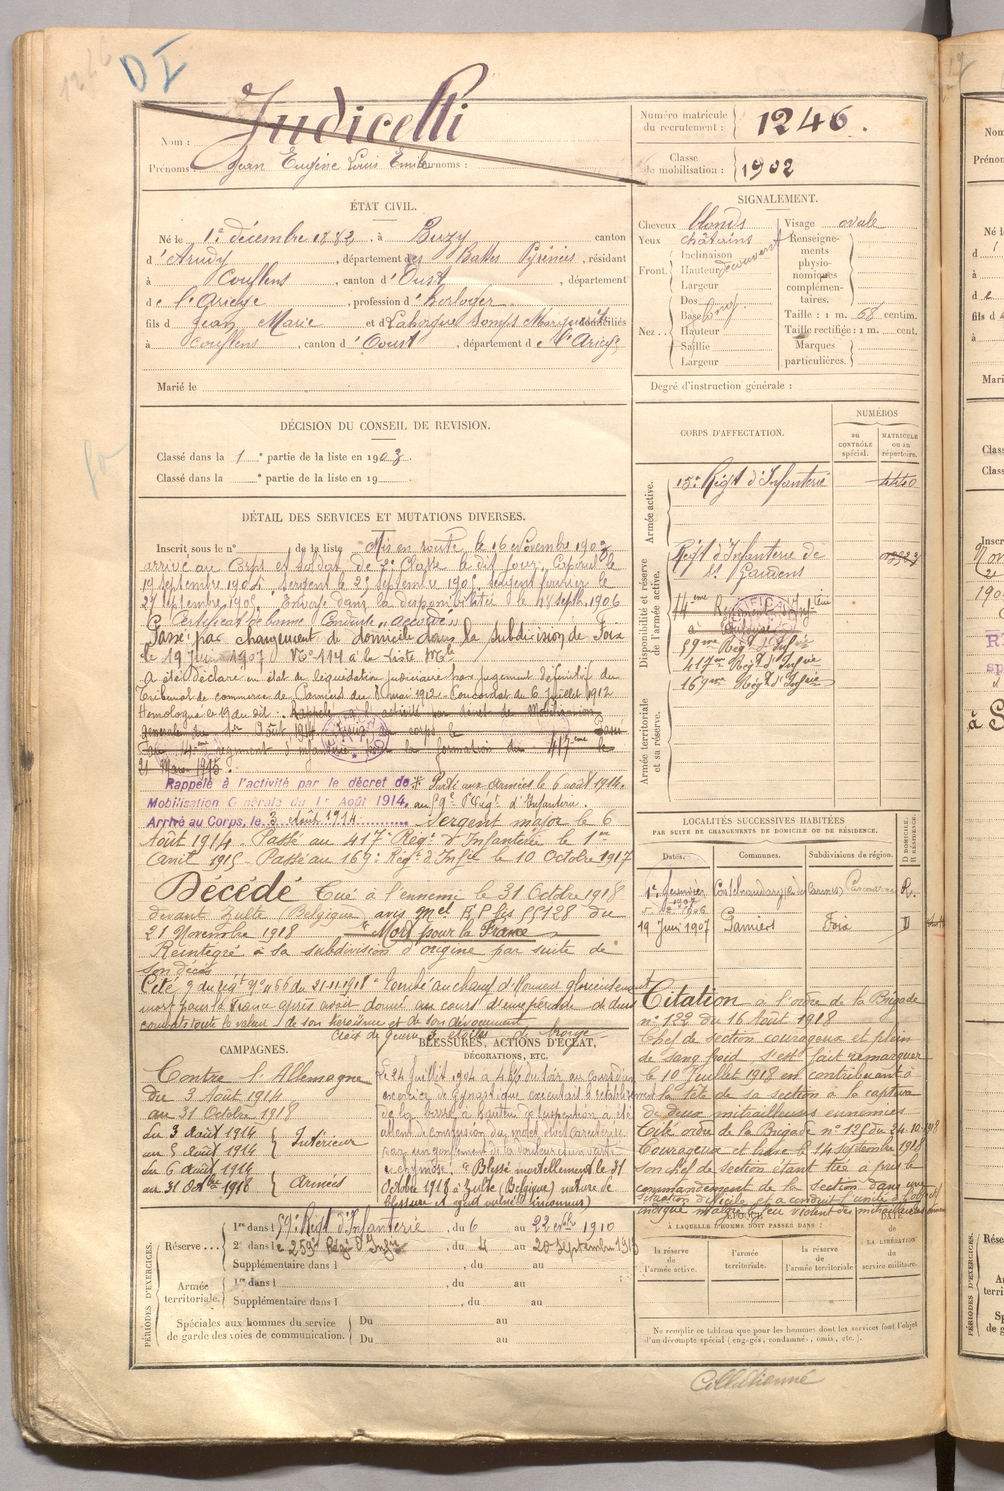 1246
D I
Nom : Judicelli
Prénoms : Jean Eugène Louis Emile Surnoms :
Numéro matricule du recrutement : 1246.
Classe de mobilisation : 1902
ÉTAT CIVIL.
Né le 1er décembre 1882, à Buzy canton
d'Arudy, département des Basses Pyrénées, résidant
à Couflens, canton d'Oust, département
de l'Ariège, profession d'horloger
fils de Jean Marie et de Lahorgue domiciliés
à Couflens, canton d'Oust, département de l'Ariège
Marié le
SIGNALEMENT.
Cheveux blonds
Yeux châtains
Front : Inclinaison
Hauteur découvert
Largeur
Nez : Dos
Base
Hauteur
Saillie
Largeur
Visage ovale
Renseignements physionomiques complémentaires.
Taille : 1 m. 68 centim.
Taille rectifiée : 1 m. cent.
Marques particulières.
Degré d'instruction générale :
DÉCISION DU CONSEIL DE REVISION.
Classé dans la 1e partie de la liste en 1903.
Classé dans la e partie de la liste en 19
CORPS D'AFFECTATION.
NUMÉROS
au CONTRÔLE spécial.
MATRICULE ou au répertoire.
Armée active.
15e Régt d'Infanterie
Disponibilité et réserve de l'armée active.
Régt d'Infanterie de
St Gaudens
14eme Régiment d'Infie
59me Régt d'Infie
417me Régt d'Infie
169me Régt d'Infie
Armée territoriale et sa réserve.
DÉTAIL DES SERVICES ET MUTATIONS DIVERSES.
Inscrit sous le n° de la liste Mis en route le 16 Novembre 1903
arrivé au Corps et soldat de 2e classe le dit jour. Caporal le
19 septembre 1904. Sergent le 25 septembre 1905, sergent fourrier le
27 septembre 1905. Envoyé dans la disponibilité le 18 septb. 1906
Certificat de bonne Conduite "accordé"
Passé par changement de domicile dans la subdivision de Foix
le 19 Juin 1907 No 114 à la liste Mle
A été déclaré en état de liquidation judiciaire par jugement définitif du
Tribunal de commerce de Pamiers du 8 mai 1912. Concordat du 6 Juillet 1912
Homologué le 19 du dit. Rappelé à l'activité par décret de Mobilisation
générale du 1er Août 1914. Arrivé au corps le
au 14eme régiment d'infanterie pour la formation du 417eme le
21 Mars 1915.
Rappelé à l'activité par le décret de
Mobilisation Générale du 1er Août 1914.
Arrivé au Corps, le 3 Août 1914
* Parti aux Armées le 6 août 1914.
au 59e Régt d'Infanterie.
Sergent major le 6
Août 1914. Passé au 417e Régt d'Infanterie le 1er
Avril 1915. Passé au 169e Régt d'Infie le 10 Octobre 1917
Décédé Tué à l'ennemi le 31 Octobre 1918
devant Zulte (Belgique) avis Mel du
21 Novembre 1918 "Mort pour la France"
Réintégré à sa subdivision d'origine par suite de
son décès
Cité O du régt No 466 du 21-11-1918 "Tombé au champ d'Honneur glorieusement
mort pour la France après avoir donné au cours d'une période de durs
combats toute la valeur de son héroïsme et de son dévouement
Croix de guerre 3 étoiles de bronze
LOCALITÉS SUCCESSIVES HABITÉES
PAR SUITE DE CHANGEMENTS DE DOMICILE OU DE RÉSIDENCE.
Dates.
Communes.
Subdivisions de région.
D DOMICILE. R RÉSIDENCE.
1er Janvier 1907 Castelnaudary Carcassonne R.
19 Juin 1907 Pamiers Foix D
Citation à l'ordre de la Brigade
n° 122 du 16 Août 1918
Chef de section courageux et plein
de sang froid s'est fait remarquer
le 10 Juillet 1918 en contribuant à
la tête de sa section à la capture
de deux mitrailleuses ennemies
Cité ordre de la Brigade n° 125 du 24-10-1918
Courageux et brave le 14 septembre 1918
son chef de section étant tué a pris le
commandement de la section dans une
situation difficile et a conduit l'unité à l'objectif
indiqué malgré le feu violent des mitrailleuses ennemies
CAMPAGNES.
Contre l'Allemagne
du 3 Août 1914
au 31 Octobre 1918
du 3 Août 1914
au 5 Août 1914
Intérieur
du 6 Août 1914
au 31 Octbre 1918
Armées
BLESSURES, ACTIONS D'ÉCLAT,
DÉCORATIONS, ETC.
Le 24 Juillet 1904 à 4h½ du soir au cours d'un
exercice de gymnastique exécutait
"Blessé mortellement le 31
Octobre 1918 à Zulte (Belgique) nature de
blessure et agent vulnérant inconnus)
PÉRIODES D'EXERCICES.
Réserve
1re dans l 59e Régt d'Infanterie, du 6 au 22 1910
2e dans le 259e Régt d'Infie, du 4 au 20 Septembre 1913
Supplémentaire dans l , du au
Armée territoriale.
1re dans l , du au
Supplémentaire dans l , du au
Spéciales aux hommes du service de garde des voies de communication.
Du au
Du au
ÉPOQUE
À LAQUELLE L'HOMME DOIT PASSER DANS :
la réserve de l'armée active.
l'armée territoriale.
la réserve de l'armée territoriale
DATE de LA LIBÉRATION du service militaire.
Ne remplir ce tableau que pour les hommes dont les services font l'objet
d'un décompte spécial (engagés, condamnés, omis, etc.).
Collationné